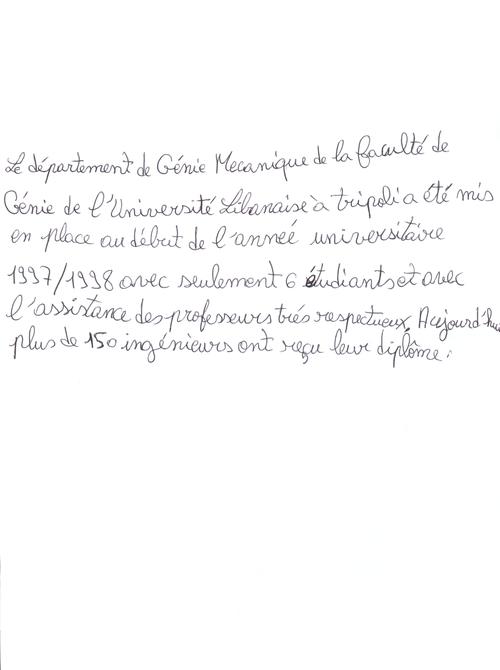 Le département de Génie Mecanique de la faculté de
Génie de l'Université Libanaise à tripoli a été mis
en place au début de l'anneé universitaire
1997/1998 avec seulement 6 étudiants et avec
l'assistance des professeurs trés respectueux. Aujourd'hui
plus de 150 ingénieurs ont reçu leur diplôme.